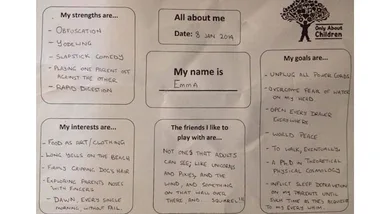 My strengths are...
- OBFUSCATION
- YODELING
- SLAPSTICK COMEDY
- PLAYING ONE PARENT OFF
AGAINST THE OTHER
- RAPID DIGESTION
All about me
Date: 8 JAN 2014
My name is
EMMA
Only About
Children
My goals are...
- UNPLUG ALL POWER CORDS
- OVERCOME FEAR OF WATER
ON MY HEAD
- OPEN EVERY DRAWER
EVERYWHERE
- WORLD PEACE
- TO WALK, EVENTUALLY
- A PhD IN THEORETICAL
PHYSICAL COSMOLOGY
- INFLICT SLEEP DEPRIVATION
ON MY PARENTS UNTIL
SUCH TIME AS THEY ACQUIESCE
TO MY EVERY WHIM.
My interests are...
- FOOD AS ART/CLOTHING
- LONG YELLS ON THE BEACH
- FIRMLY GRIPPING DOG'S HAIR
- EXPLORING PARENTS NOSES
WITH FINGERS
- DAWN, EVERY SINGLE
MORNING, WITHOUT FAIL
The friends I like to
play with are...
NOT ONES THAT ADULTS
CAN SEE; LIKE UNICORNS
AND PIXIES, AND THE
WIND, AND SOMETHING
ON THAT WALL OVER
THERE AND... SQUIRREL!